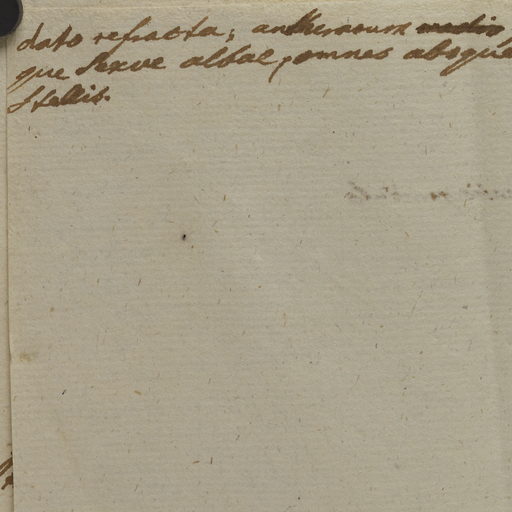 dato refracta; antherarum
que nerve albae, omnes absque
stellis.